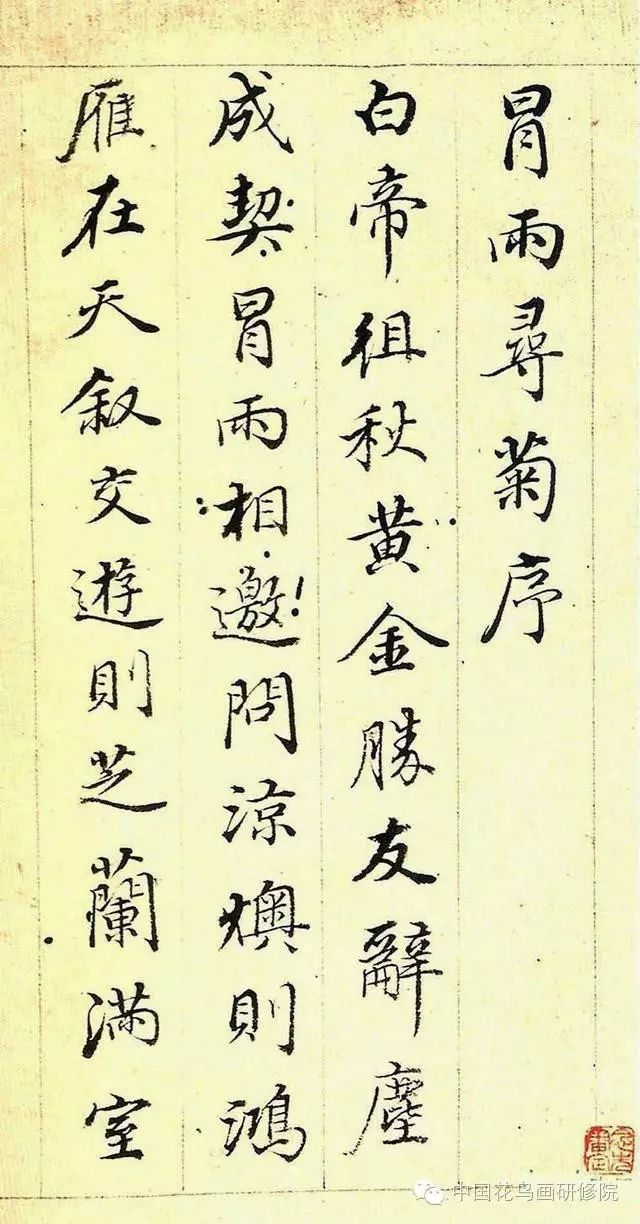 冒雨尋菊序
白帝徂秋黄金勝友辭塵
成契冒雨相邀問涼燠則鴻
雁在天叙交遊則芝蘭满室
中国花鸟画研修院